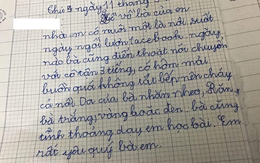 Chủ 5 ngày 11 tháng
Kể về bà của em
nhà em có nuôi một bà nội suốt
ngày ngồi lướt facebook. ngày
nào bà cũng điện thoại nói chuyện
với cô tận 3 tiếng, có hôm mải
buôn quá không rút bếp nên cháy
cả nồi. Da của bà nhăn nheo. Răng
bà trắng vàng hoặc đen. bà cũng
tỉnh thoảng dạy em học bài. Em
rất yêu quý bà em.